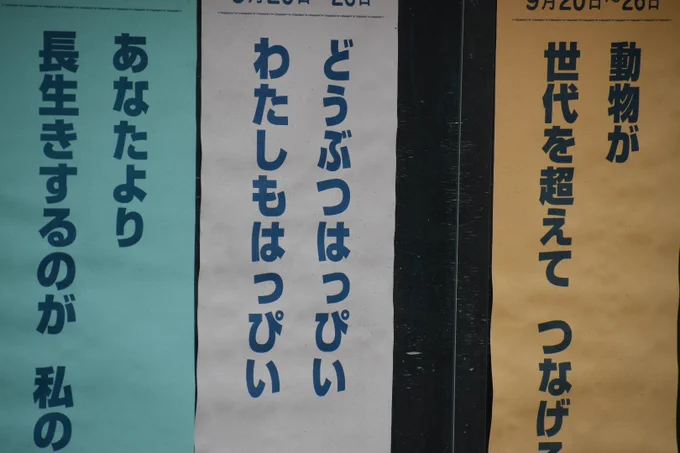 9月20日~26日
動物が
世代を超えて つなげ
どうぶつはっぴい
わたしもはっぴい
あなたより
長生きするのが 私の